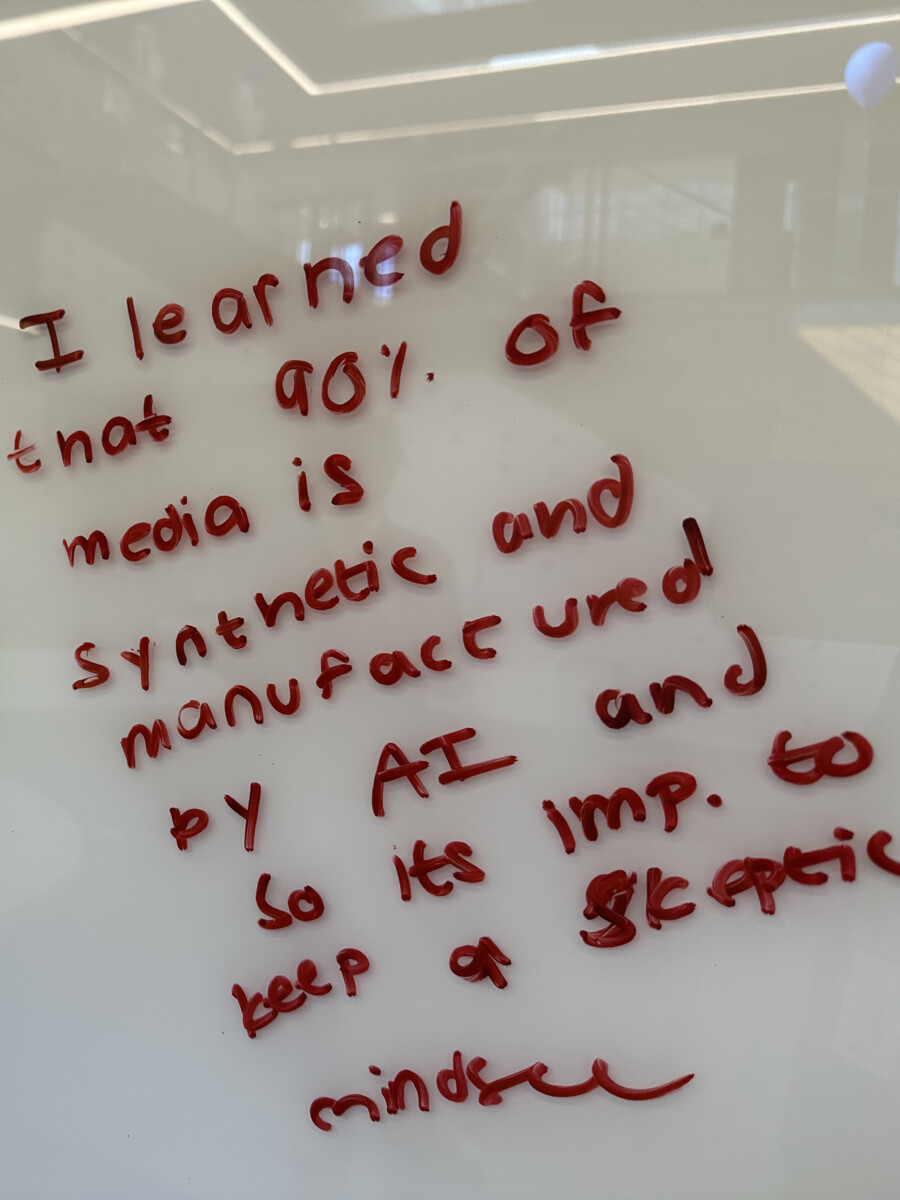 I learned
that 90% of
media is
synthetic and
manufactured
by AI and
so its imp. to
keep a skeptic